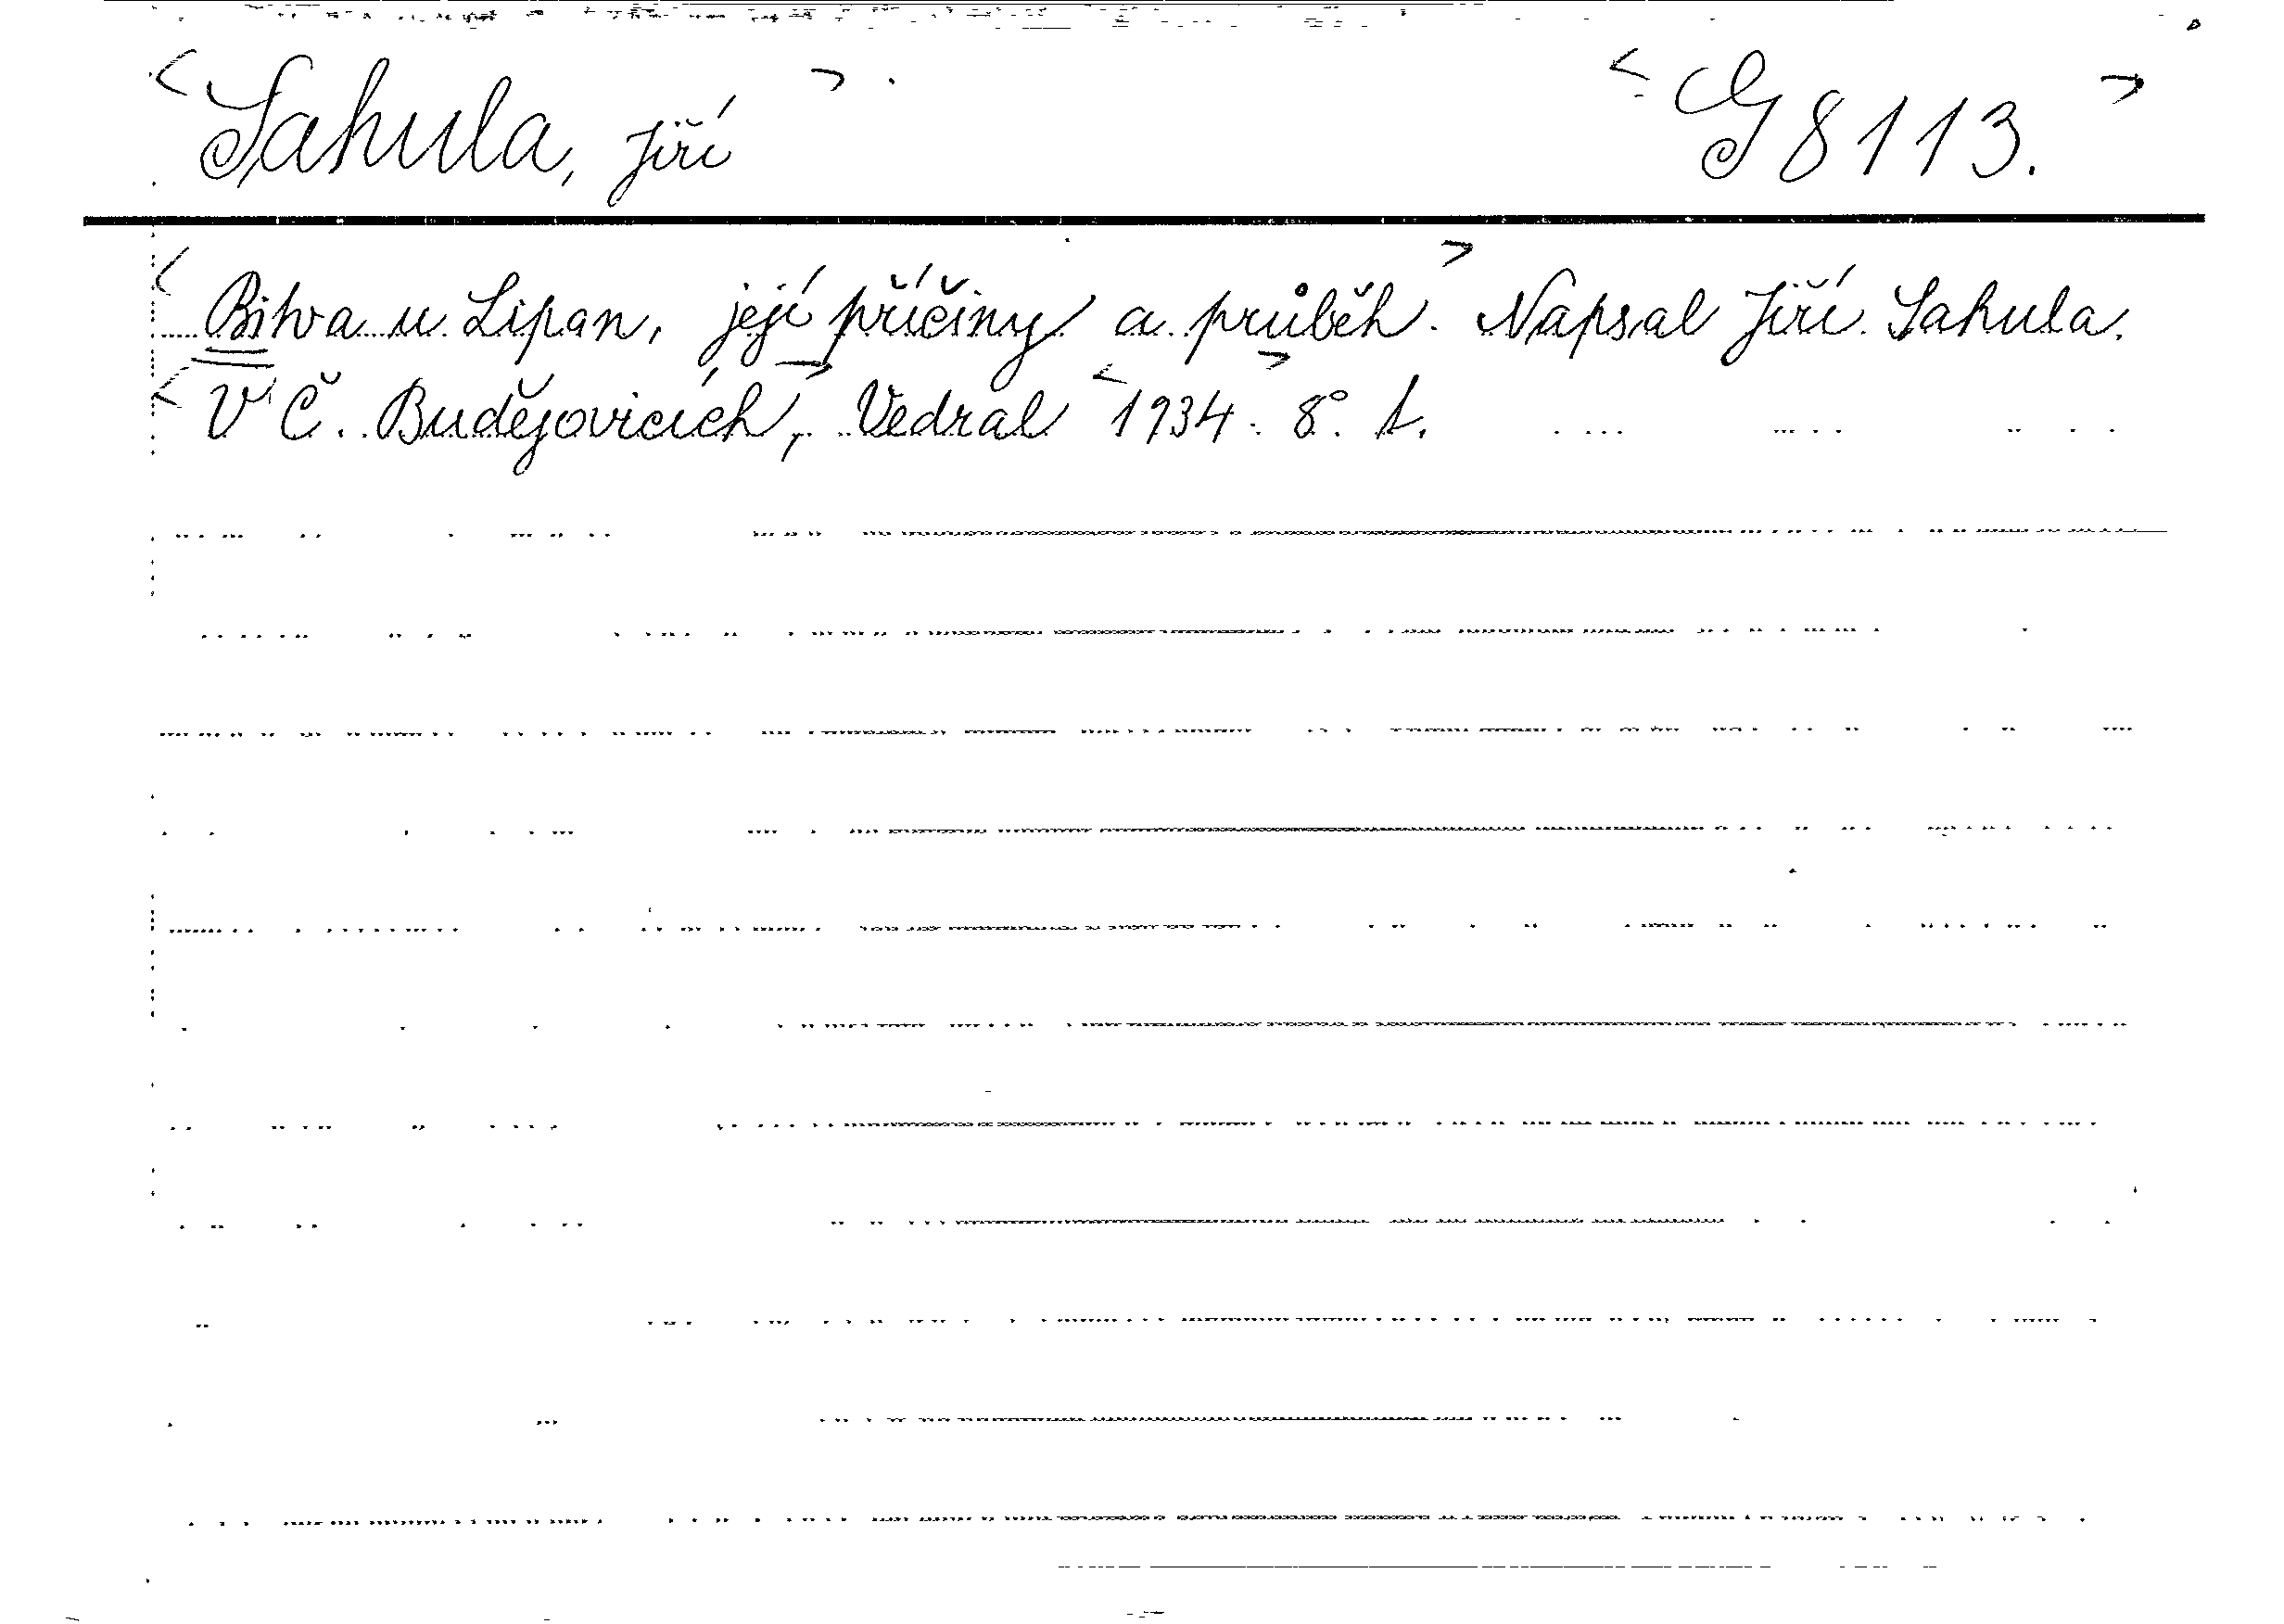 <Sahula, Jiří>. <G 8113.>
<Bitva u Lipan, její příčiny a průběh.> Napsal Jiří Sahula.
<V Č. Budějovicích,> Vedral <1934.> 8°.